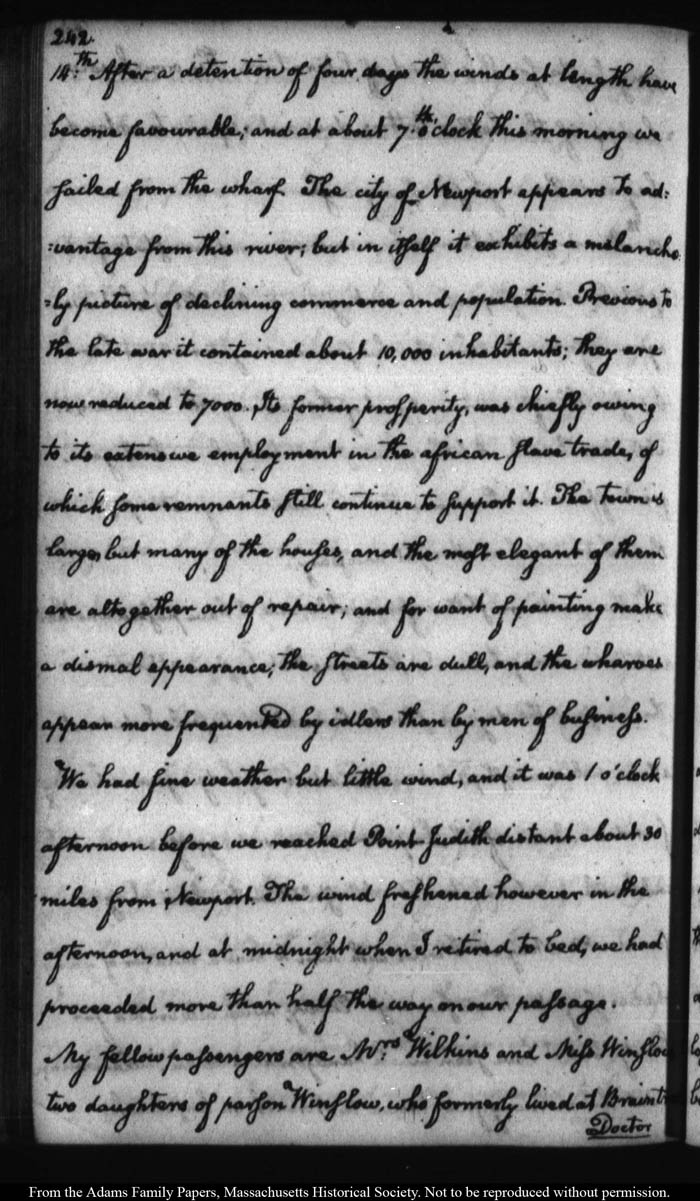 242.
14.th After a detention of four days the winds at length have
become favourable; and at about 7.th o'clock this morning we
sailed from the wharf. The city of Newport appears to ad:
:vantage from this river; but in itself it exhibits a melancho
=ly picture of declining commerce and population. Previous to
the late war it contained about 10,000 inhabitants; they are
now reduced to 7000. Its former prosperity, was chiefly owing
to its extensive employment in the african slave trade, of
which some remnants still continue to support it. The town is
large, but many of the houses, and the most elegant of them
are altogether out of repair; and for want of painting make
a dismal appearance; the streets are dull, and the wharves
appear more frequented by idlers than by men of business.
We had fine weather but little wind, and it was 1 o'clock
afternoon before we reached Point Judith distant about 30
miles from Newport. The wind freshened however in the
afternoon, and at midnight when I retired to bed, we had
proceeded more than half the way on our passage.
My fellow passengers are Mrs. Wilkins and Miss Winslow
two daughters of parson Winslow, who formerly lived at Braint
Doctor
From the Adams Family Papers, Massachusetts Historical Society. Not to be reproduced without permission.